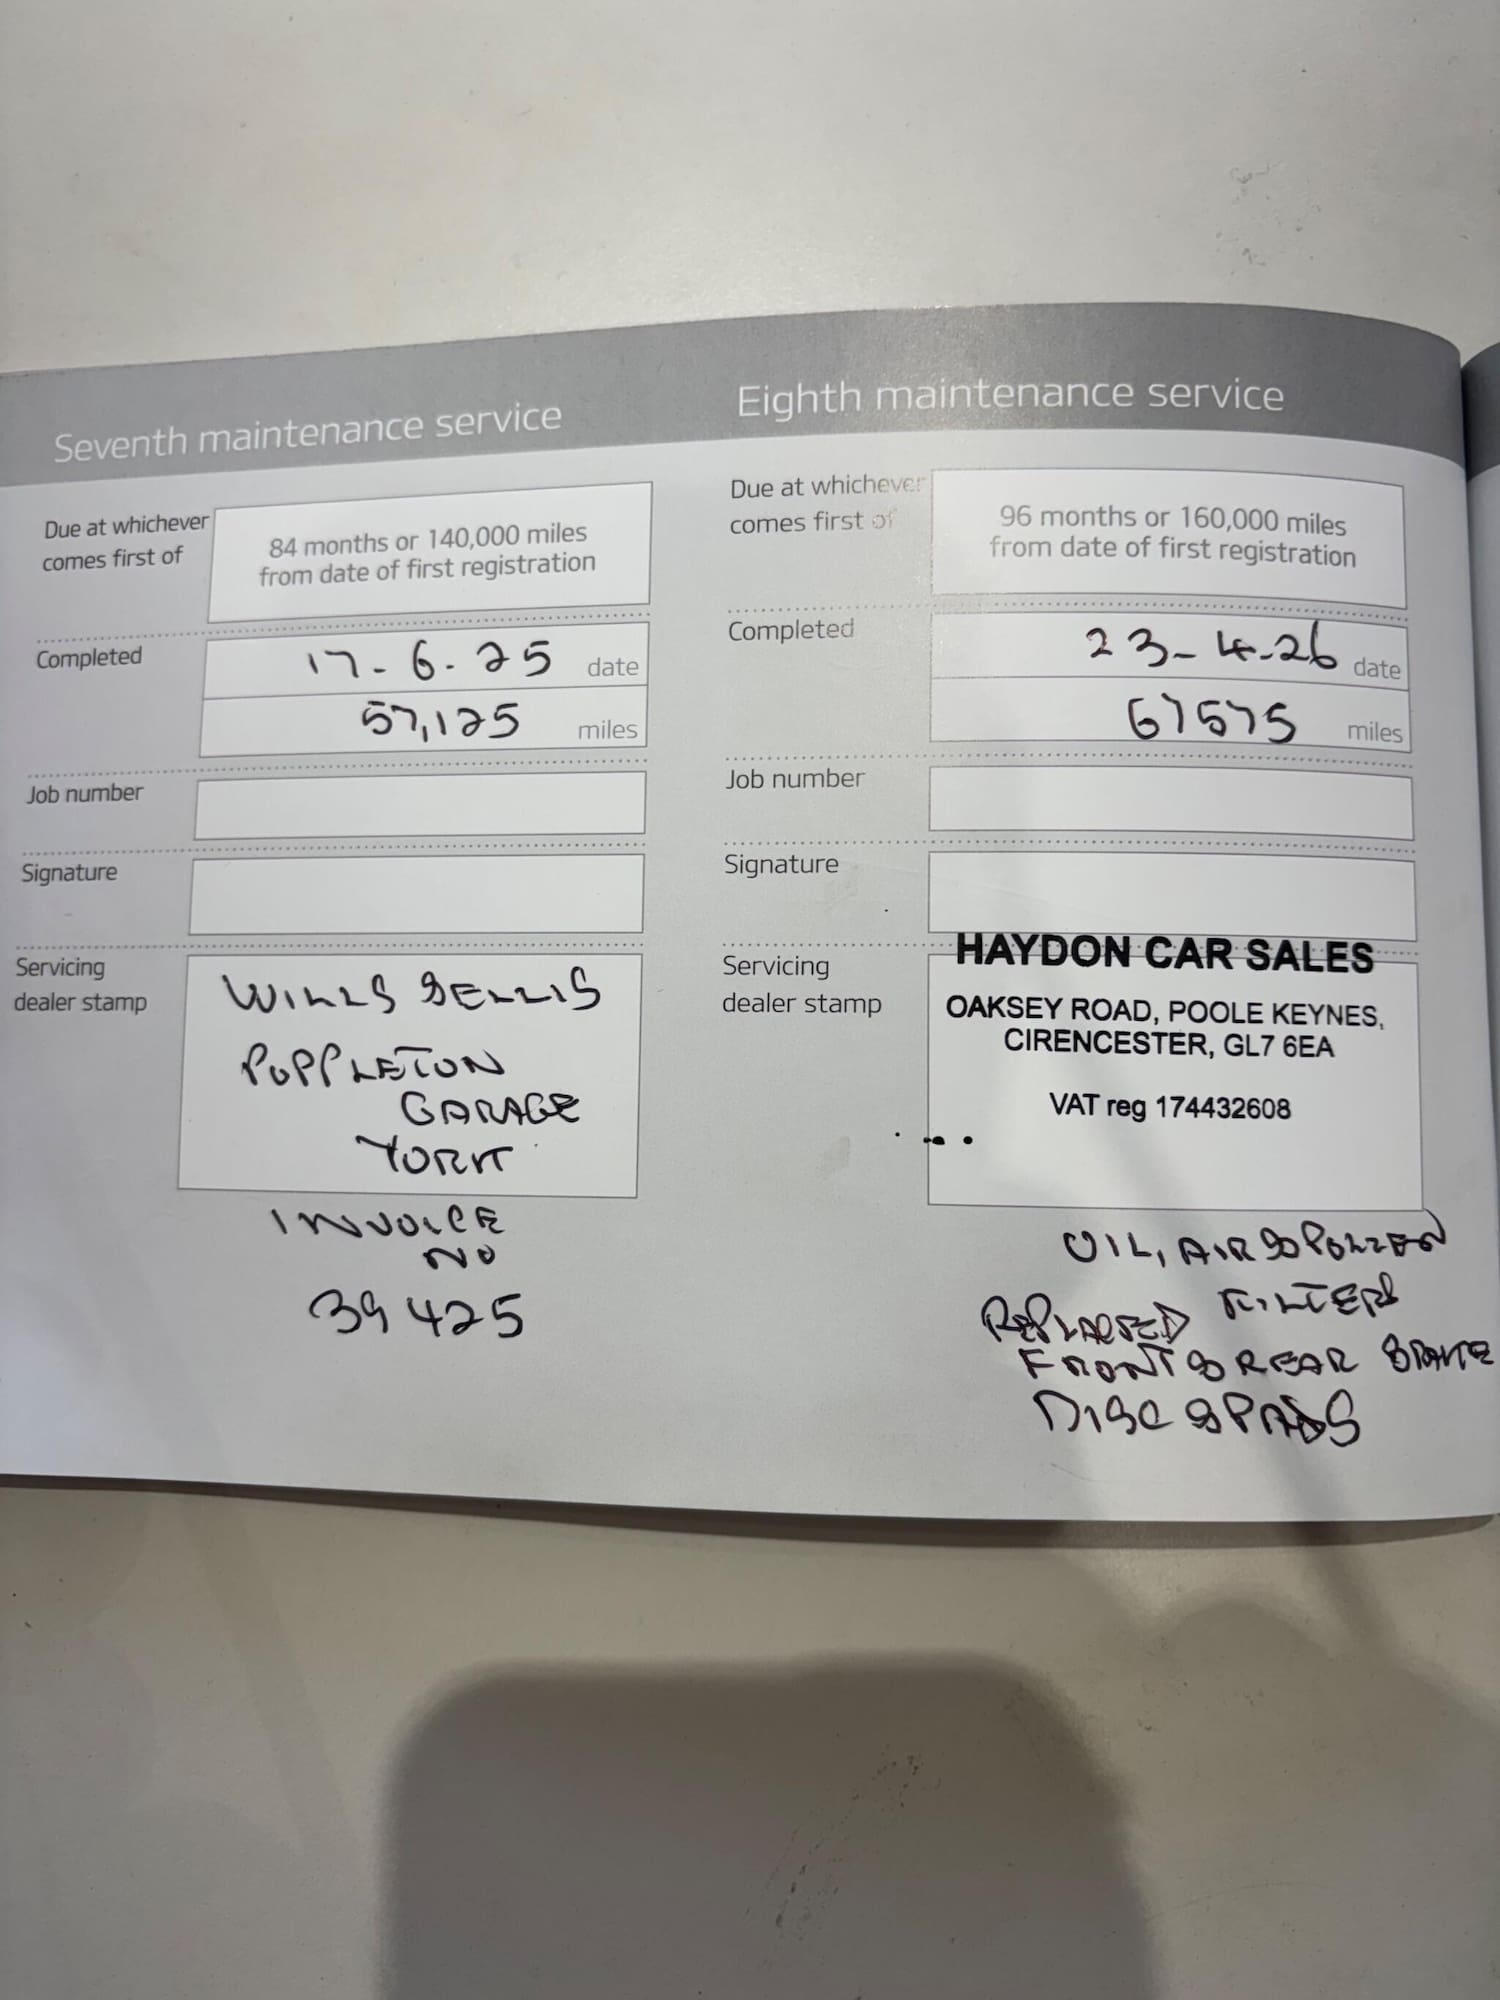 Seventh maintenance service
Due at whichever
comes first of
84 months or 140,000 miles
from date of first registration
Completed
17-6-25 date
57,125 miles
Job number
Signature
Servicing
dealer stamp
POPPLETON
GARAGE
YORK
INVOICE
NO
39425
Eighth maintenance service
Due at whichever
comes first of
96 months or 160,000 miles
from date of first registration
Completed
23-4-26 date
67575 miles
Job number
Signature
Servicing
dealer stamp
HAYDON CAR SALES
OAKSEY ROAD, POOLE KEYNES,
CIRENCESTER, GL7 6EA
VAT reg 174432608
OIL, AIR & POLLEN
FILTERS
REPLACED
FRONT & REAR BRAKE
DISC & PADS